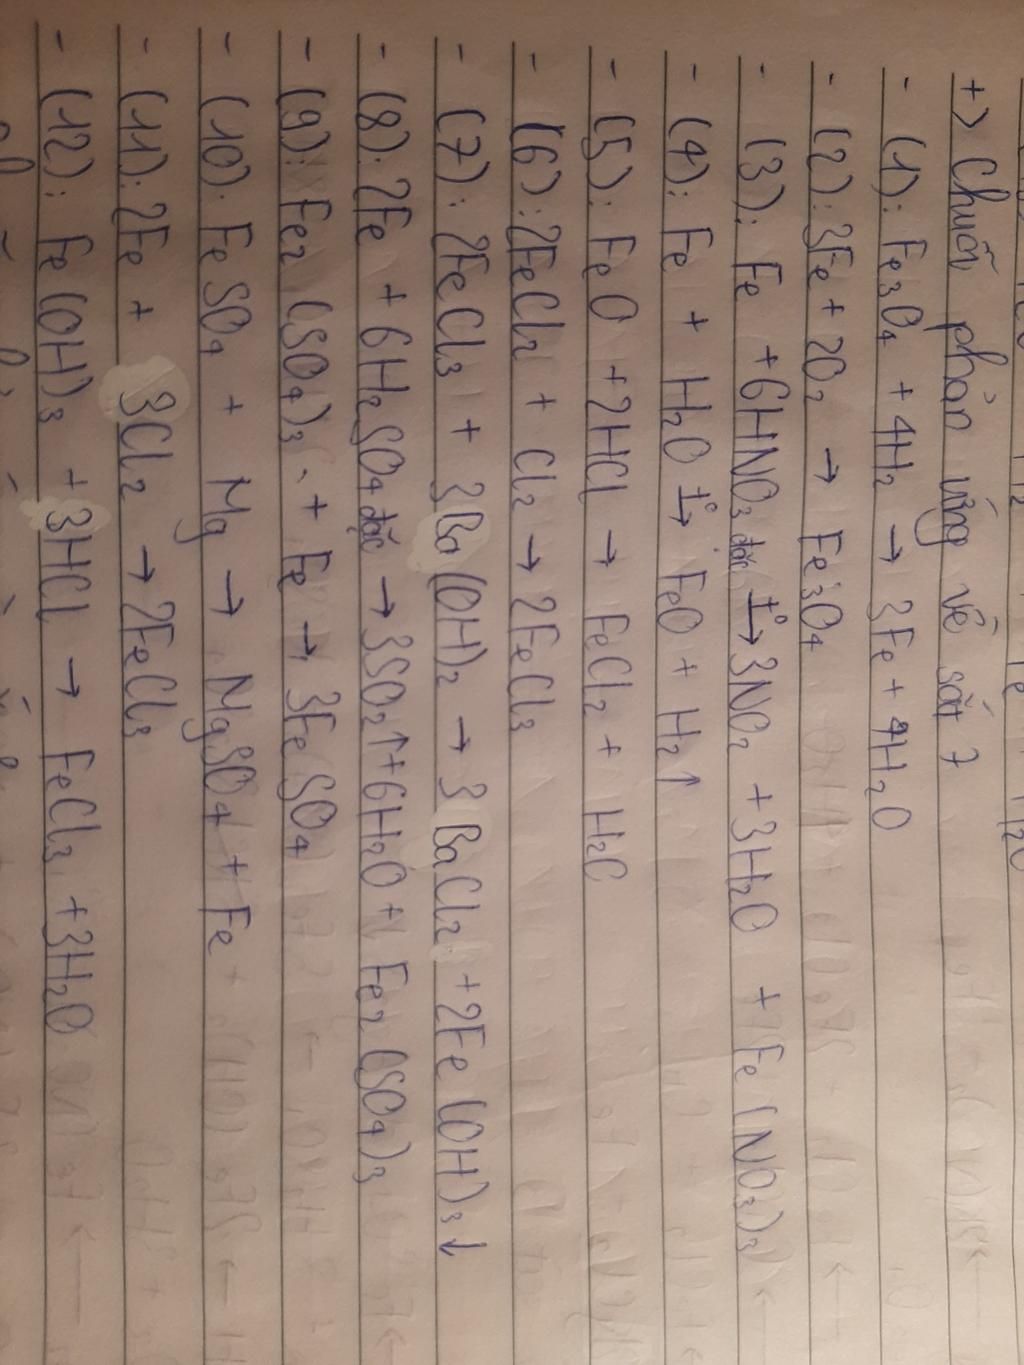 +) Chuỗi phản ứng về sắt 7
- (1): Fe3O4 + 4H2 → 3Fe + 4H2O
- (2): 3Fe + 2O2 → Fe3O4
- (3): Fe + 6HNO3 đặc t°→ 3NO2 + 3H2O + Fe(NO3)3
- (4): Fe + H2O t°→ FeO + H2↑
- (5): FeO + 2HCl → FeCl2 + H2O
- (6): 2FeCl2 + Cl2 → 2FeCl3
- (7): 2FeCl3 + 3Ba(OH)2 → 3BaCl2 + 2Fe(OH)3↓
- (8): 2Fe + 6H2SO4 đặc → 3SO2↑ + 6H2O + Fe2(SO4)3
- (9): Fe2(SO4)3 + Fe → 3FeSO4
- (10): FeSO4 + Mg → MgSO4 + Fe
- (11): 2Fe + 3Cl2 → 2FeCl3
- (12): Fe(OH)3 + 3HCl → FeCl3 + 3H2O